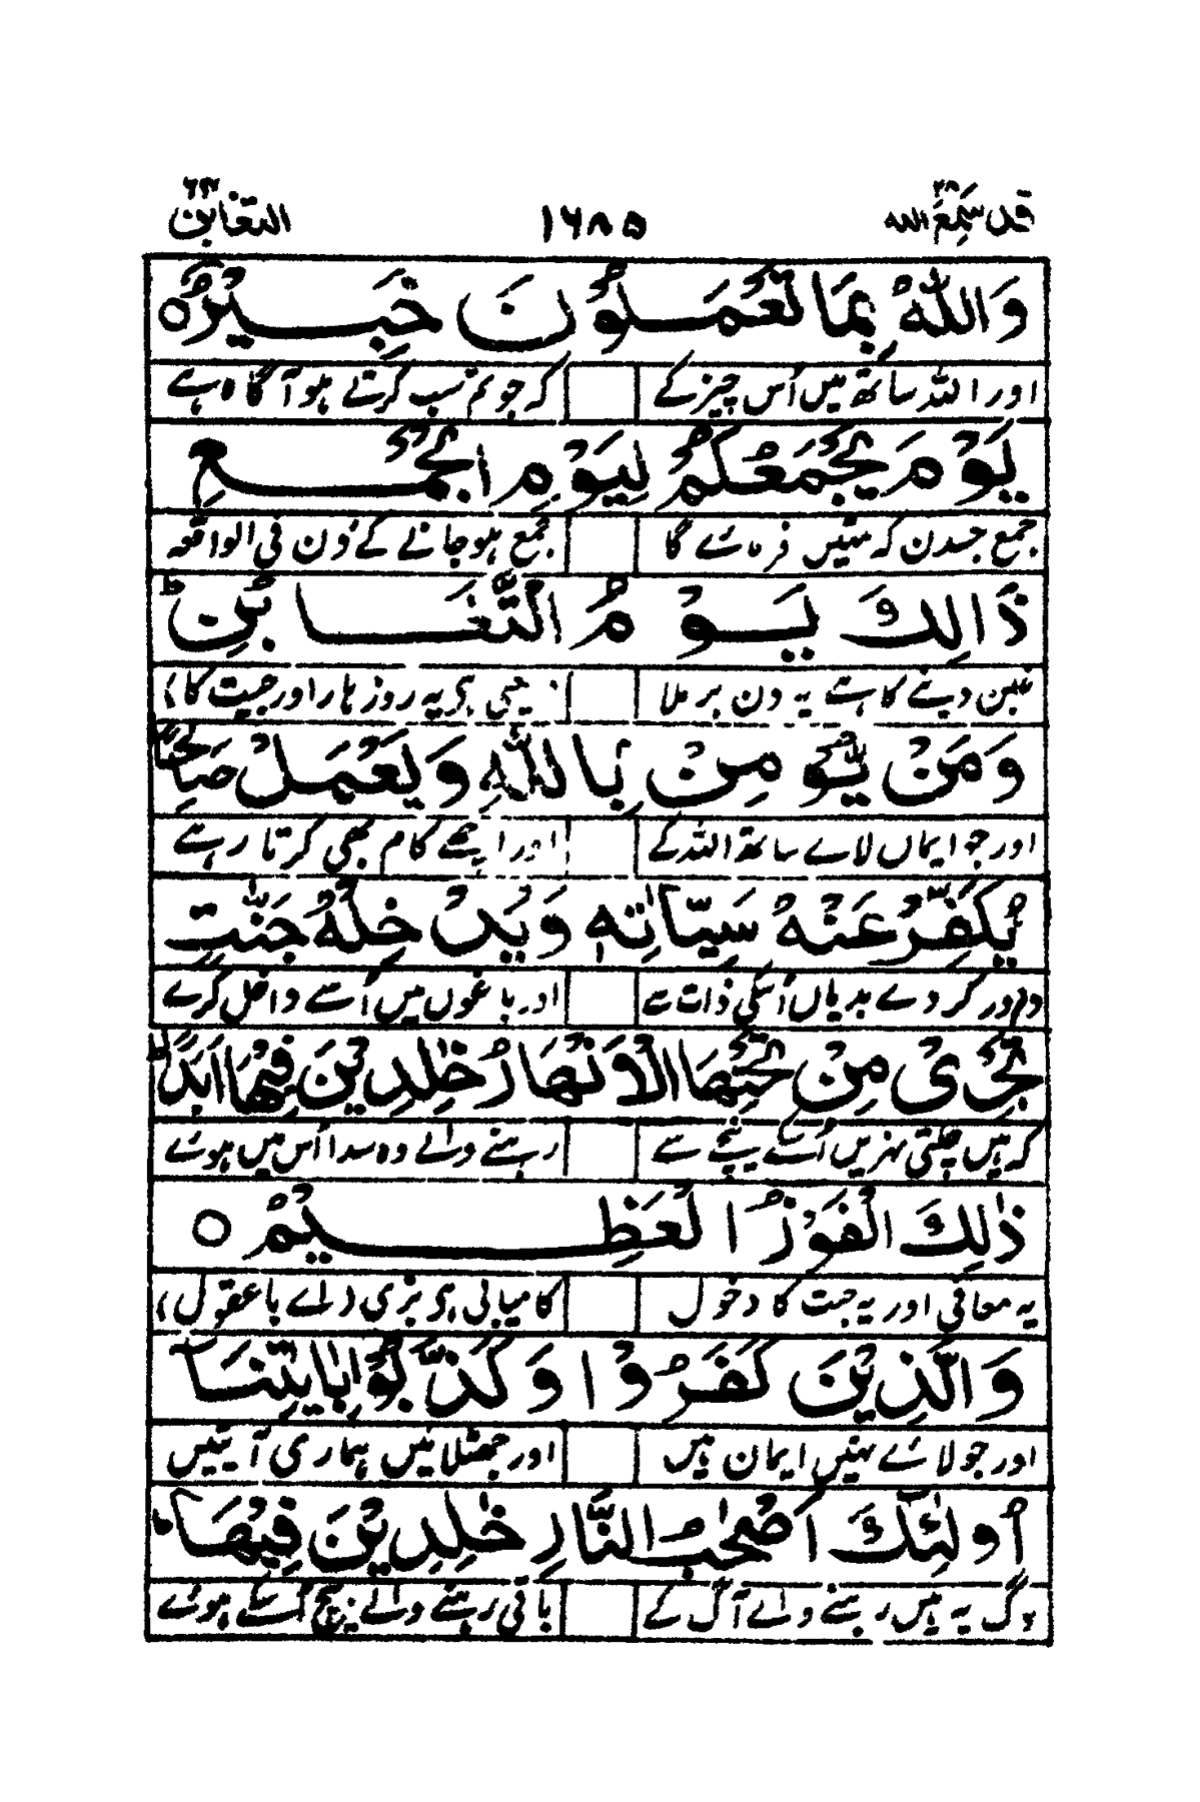 قد سمع الله ٢٨ ١٦٨٥ التغابن ٦٤
وَاللّٰهُ بِمَا تَعْمَلُوْنَ خَبِيْرٌ ○
اور اللہ ساتھ میں اُس چیز کے کہ جو تم سب کرتے ہو آگاہ ہے
يَوْمَ يَجْمَعُكُمْ لِيَوْمِ الْجَمْعِ
جمع جسدن کہ تمہیں فرمائے گا جمع ہو جانے کے دن فی الواقعہ
ذَالِكَ يَوْمُ التَّغَابُنِ ط
غبن دینے کا ہے یہ دن بر ملا یہی ہے یہ روز ہار اور جیت کا)
وَمَنْ يُّؤْمِنْ بِاللّٰهِ وَيَعْمَلْ صَالِحًا
اور جو ایماں لائے ساتھ اللہ کے اور اچھے کام بھی کرتا رہے
يُّكَفِّرْ عَنْهُ سَيِّاٰتِهٖ وَيُدْخِلْهُ جَنّٰتٍ
دور کر دے بدیاں اُسکی ذات سے اور باغوں میں اُسے داخل کرے
تَجْرِيْ مِنْ تَحْتِهَا الْاَنْهَارُ خٰلِدِيْنَ فِيْهَا اَبَدًا ط
کہ ہیں چلتی نہریں اُسکے نیچے سے رہنے والے وہ سدا اُس میں ہوئے
ذٰلِكَ الْفَوْزُ الْعَظِيْمُ ○
یہ معافی اور یہ جنت کا دخول کامیابی ہے بڑی (اے باعقول)
وَالَّذِيْنَ كَفَرُوْا وَكَذَّبُوْا بِاٰيٰتِنَا
اور جو لائے نہیں ایمان ہیں اور جھٹلائیں ہماری آیتیں
اُولٰٓئِكَ اَصْحٰبُ النَّارِ خٰلِدِيْنَ فِيْهَا ط
لوگ یہ ہیں رہنے والے آگ کے باقی رہنے والے بیچ اُسکے ہوئے